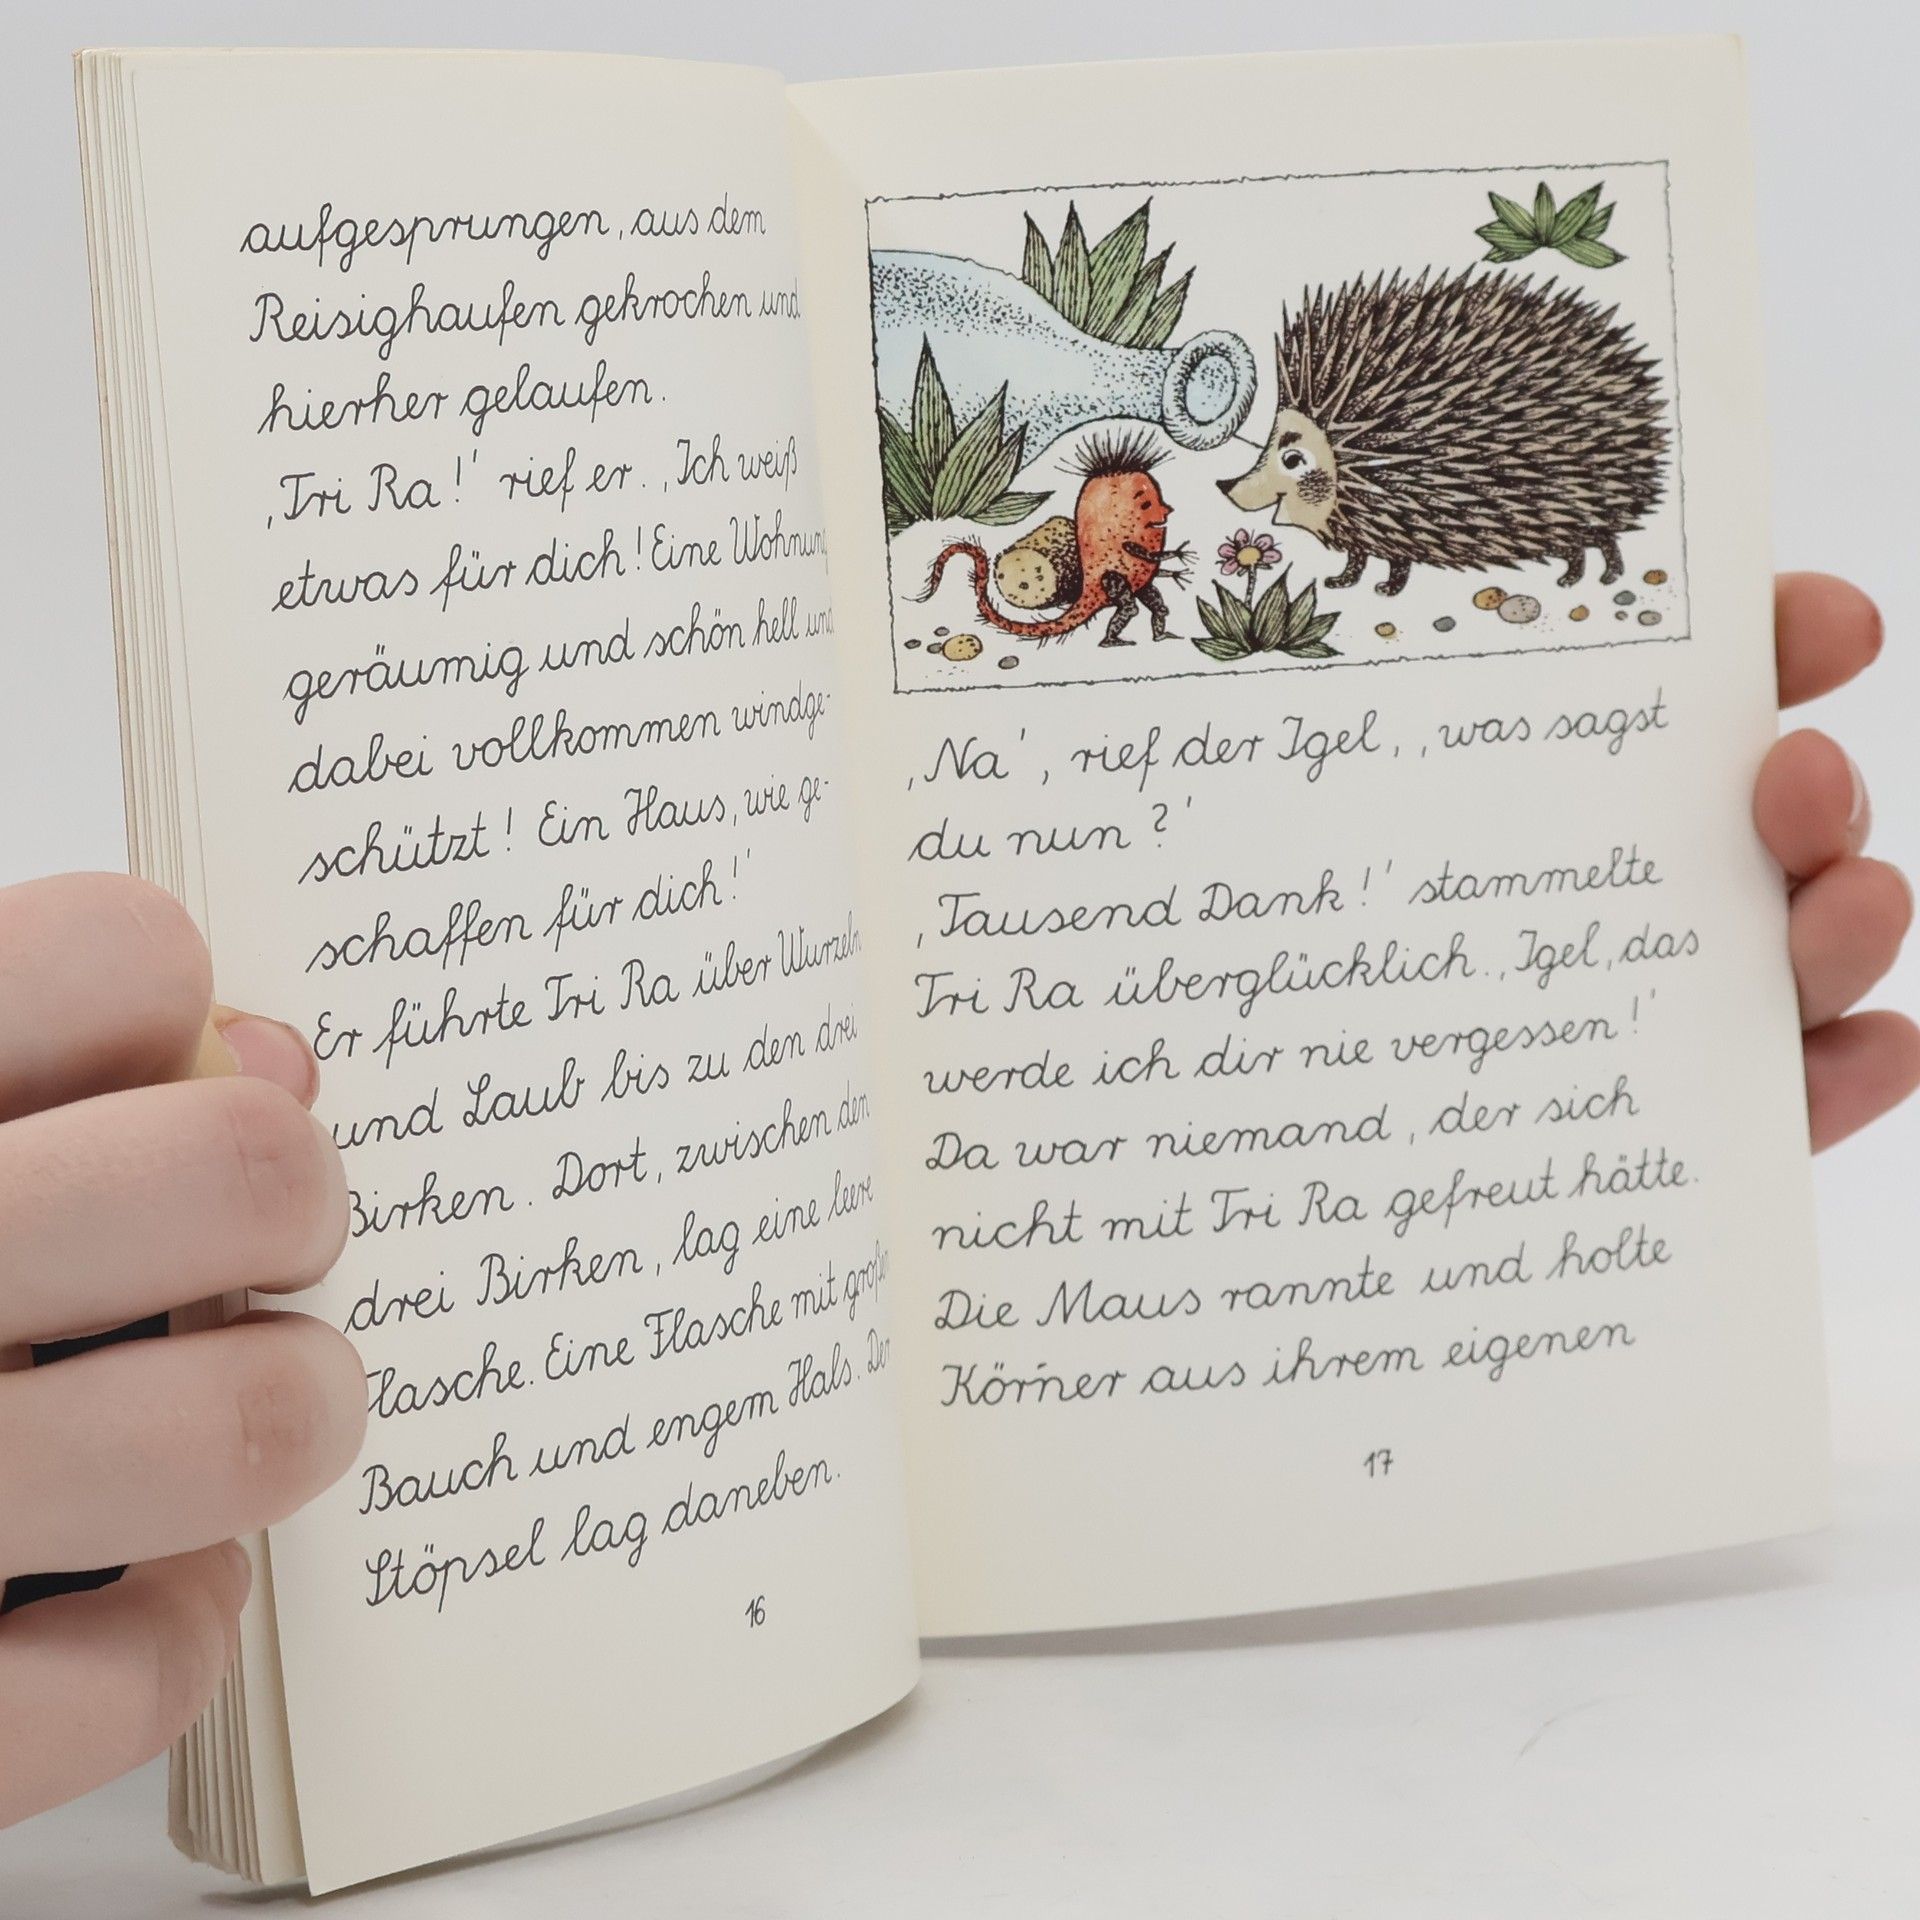 aufgesprungen, aus dem
Reisighaufen gekrochen und
hierher gelaufen.
‚Tri Ra!' rief er. ‚Ich weiß
etwas für dich! Eine Wohnung
geräumig und schön hell und
dabei vollkommen windge-
schützt! Ein Haus, wie ge-
schaffen für dich!'
Er führte Tri Ra über Wurzeln
und Laub bis zu den drei
Birken. Dort, zwischen den
drei Birken, lag eine leere
Flasche. Eine Flasche mit großem
Bauch und engem Hals. Der
Stöpsel lag daneben.
16
‚Na', rief der Igel, ‚was sagst
du nun?'
‚Tausend Dank!' stammelte
Tri Ra überglücklich. ‚Igel, das
werde ich dir nie vergessen!'
Da war niemand, der sich
nicht mit Tri Ra gefreut hätte.
Die Maus rannte und holte
Körner aus ihrem eigenen
17